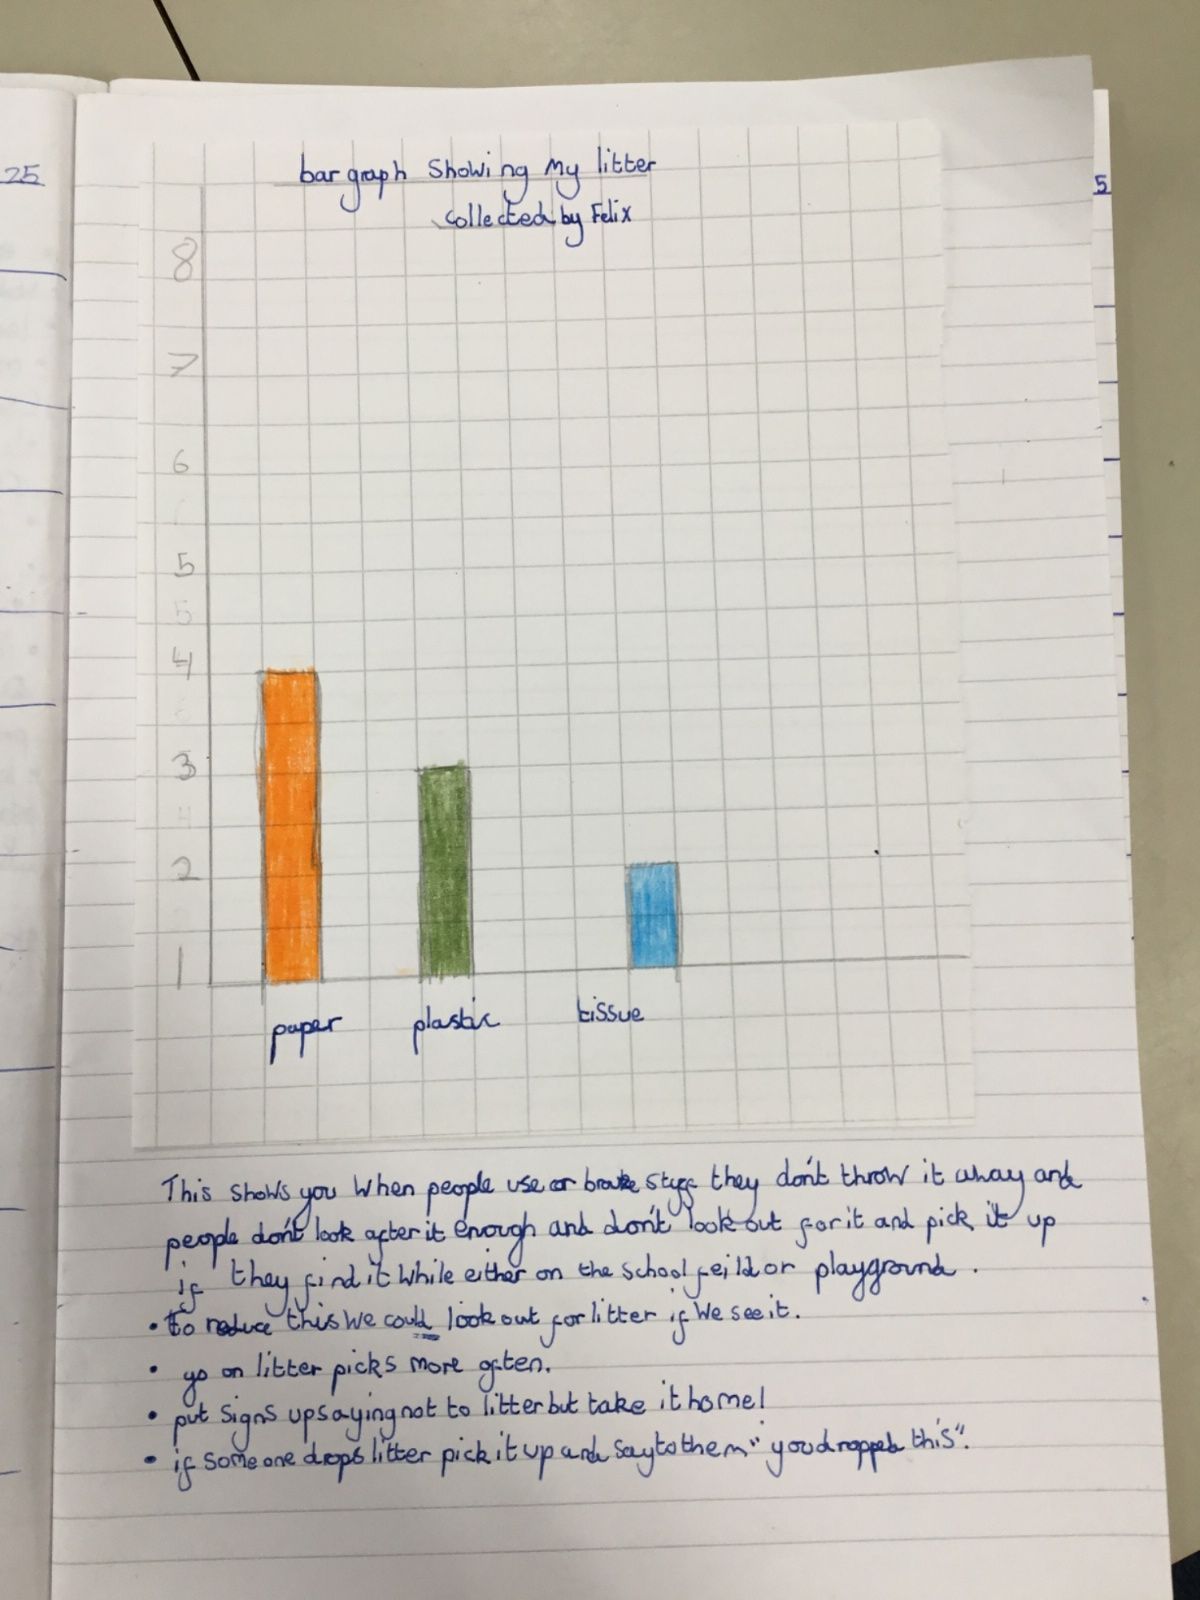 25
5
bar graph Showing My litter
collected by Felix
8
7
6
5
5
4
3
2
1
paper plastic tissue
This shows you when people use or brake stuff they don't throw it away and
people don't look after it enough and don't look out for it and pick it up
if they find it while either on the school feild or playground.
• to reduce this we could look out for litter if we see it.
• go on litter picks more often.
• put signs up saying not to litter but take it home!
• if someone drops litter pick it up and say to them "you dropped this".